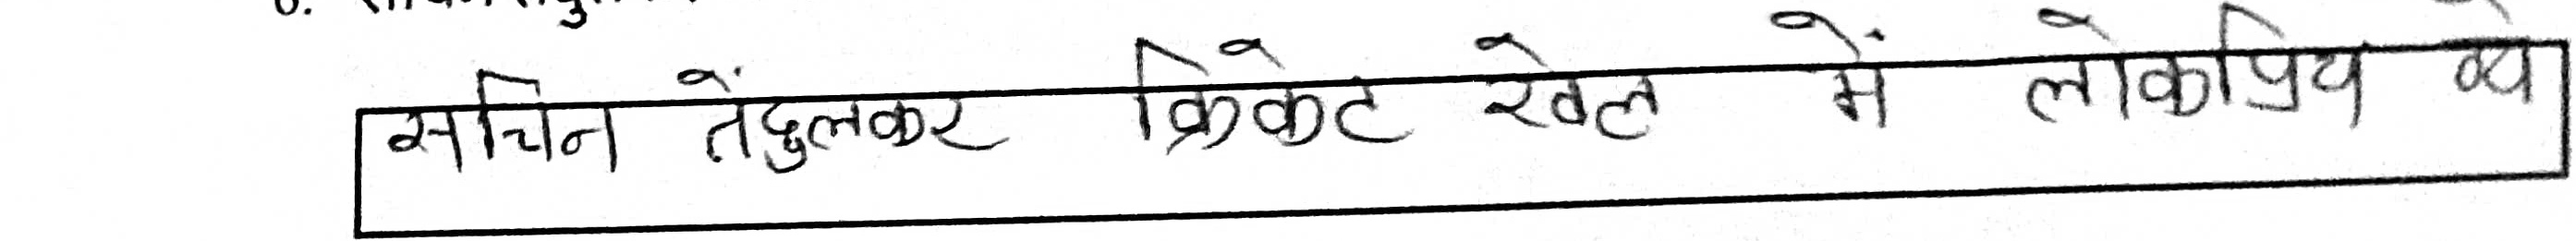 सचिन तेंदुलकर क्रिकेट खेल में लोकप्रिय थे